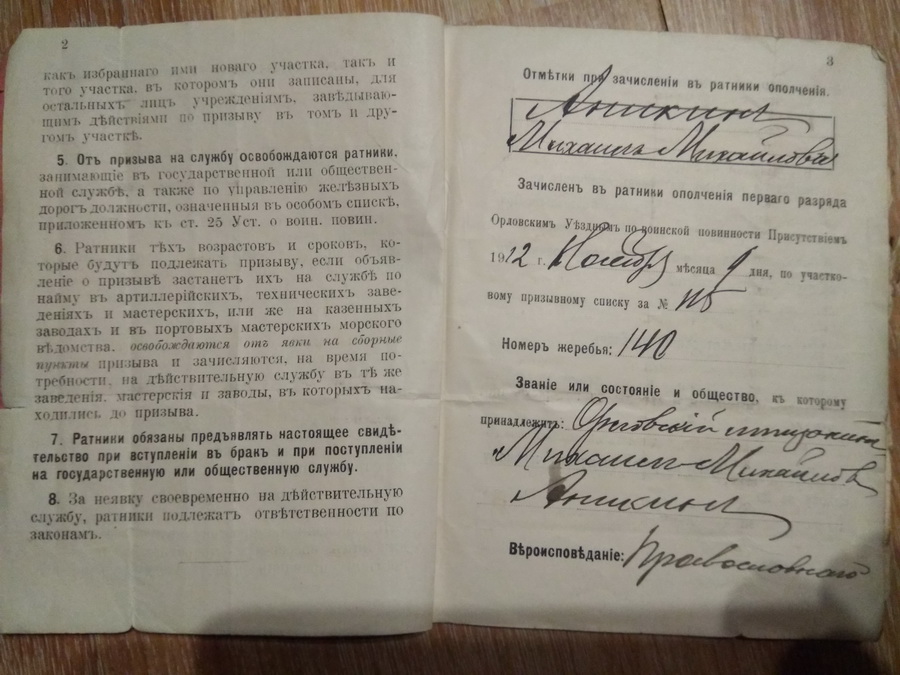 2
какъ избраннаго ими новаго участка, такъ и
того участка, въ которомъ они записаны, для
остальныхъ лицъ учрежденіямъ, завѣдываю-
щимъ дѣйствіями по призыву въ томъ и дру-
гомъ участкѣ.
5. Отъ призыва на службу освобождаются ратники,
занимающіе въ государственной или обществен-
ной службѣ, а также по управленію желѣзныхъ
дорогъ должности, означенныя въ особомъ спискѣ,
приложенномъ къ ст. 25 Уст. о воин. повин.
6. Ратники тѣхъ возрастовъ и сроковъ, ко-
торые будутъ подлежать призыву, если объяв-
леніе о призывѣ застанетъ ихъ на службѣ по
найму въ артиллерійскихъ, техническихъ заве-
деніяхъ и мастерскихъ, или же на казенныхъ
заводахъ и въ портовыхъ мастерскихъ морского
вѣдомства, освобождаются отъ явки на сборные
пункты призыва и зачисляются, на время по-
требности, на дѣйствительную службу въ тѣ же
заведенія, мастерскія и заводы, въ которыхъ на-
ходились до призыва.
7. Ратники обязаны предъявлять настоящее свидѣ-
тельство при вступленіи въ бракъ и при поступленіи
на государственную или общественную службу.
8. За неявку своевременно на дѣйствительную
службу, ратники подлежатъ отвѣтственности по
законамъ.
3
Отмѣтки при зачисленіи въ ратники ополченія.
Аникинъ
Михаилъ Михайловъ
Зачисленъ въ ратники ополченія перваго разряда
Орловскимъ Уѣзднымъ по воинской повинности Присутствіемъ
1912 г. Ноября мѣсяца 9 дня, по участко-
вому призывному списку за №
Номеръ жеребья: 140
Званіе или состояніе и общество, къ которому
принадлежитъ: Орловскій мѣщанинъ
Михаилъ Михайловъ
Аникинъ
Вѣроисповѣданіе: Православнаго